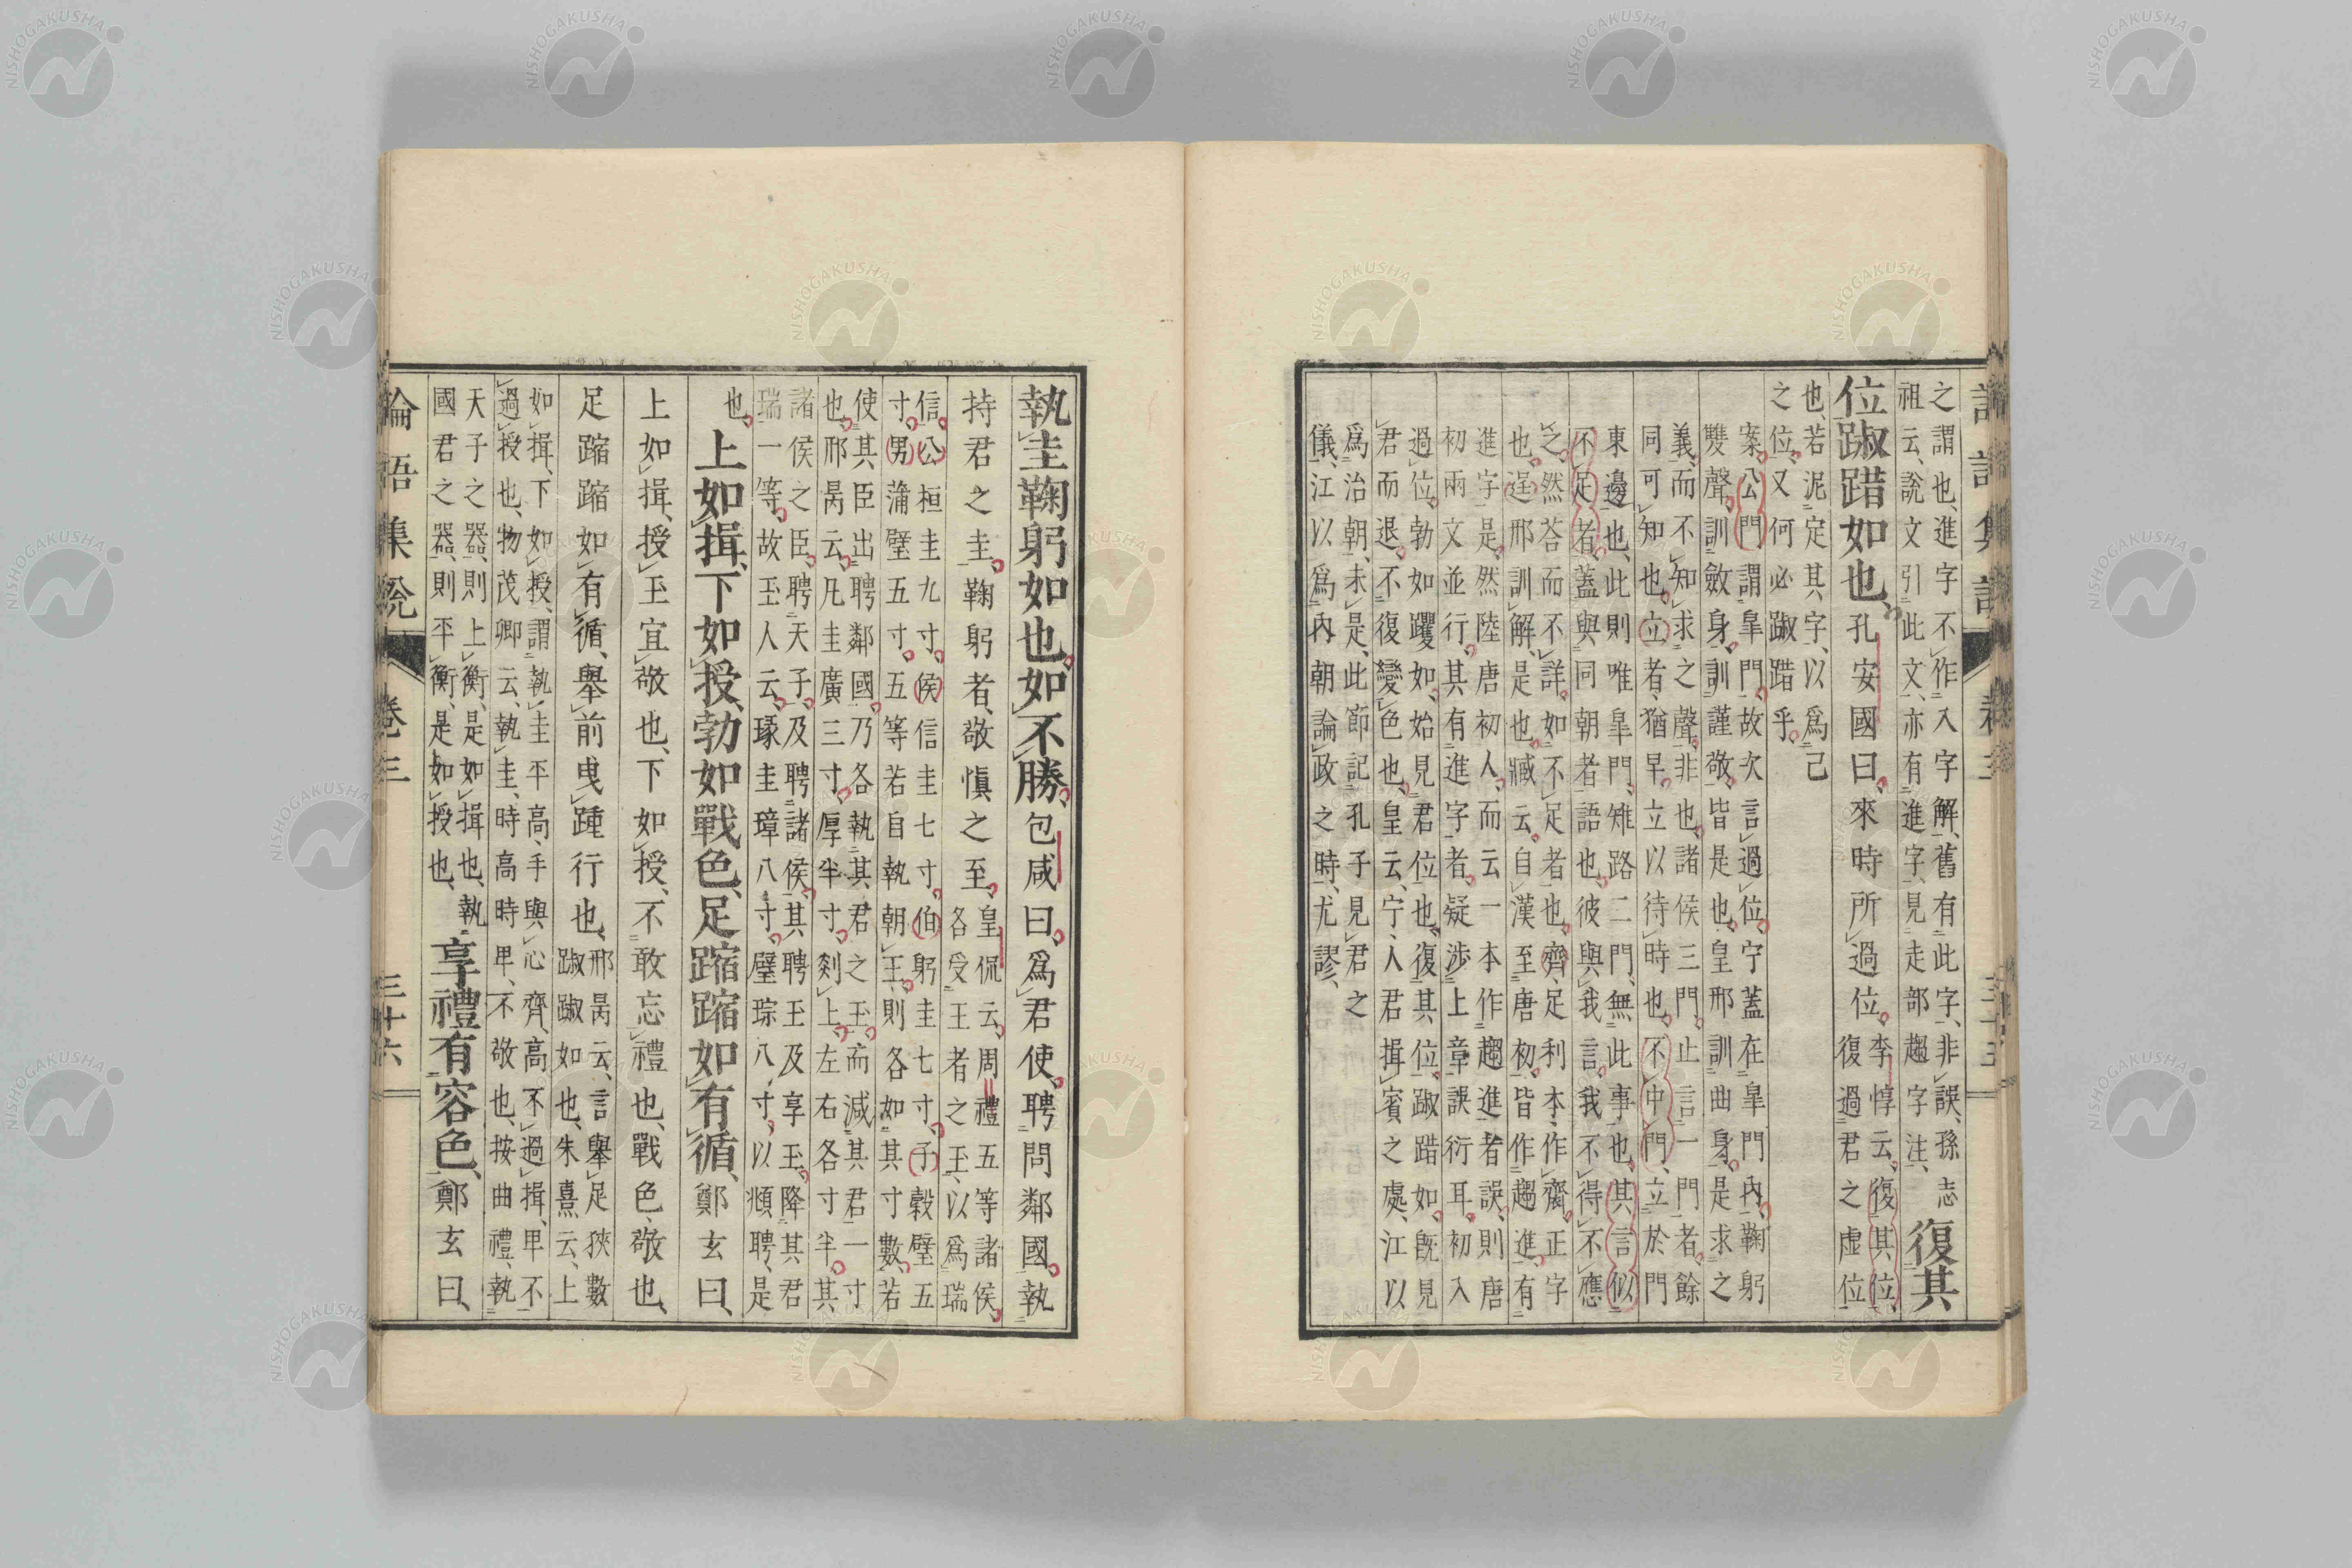 之謂也、進字不作入字解、舊有此字、非誤、孫志
祖云、說文引此文、亦有進字、見走部趨字注、
復其
位踧踖如也、孔安國曰、來時所過位、
李惇云、復其位、
復過君之虛位
也、若泥定其字、以爲己
之位、又何必踧踖乎、
案公門謂皐門、故次言過位、宁蓋在皐門內、鞠躬
雙聲、訓斂身、訓謹敬、皆是也、皇邢訓曲身、是求之
義、而不知求之聲、非也、諸侯三門、止言一門者、餘
同可知也、立者、猶早立以待時也、不中門、立於門
東邊也、此則唯皐門、雉路二門、無此事也、其言似
不足者、蓋與同朝者語也、彼與我言、我不得不應
之、然荅而不詳、如不足者也、齊、足利本、作齋、正字
也、逞邢訓解、是也、臧云、自漢至唐初、皆作趨進、有
進字是、然陸唐初人、而云一本作趨進者誤、則唐
初兩文並行、其有進字者、疑涉上章誤衍耳、初入
過位、勃如躩如、始見君位也、復其位、踧踖如、既見
君而退、不復變色也、皇云、宁、人君揖賓之處、江以
爲治朝、未是、此節記孔子見君之
儀、江以爲內朝論政之時、尤謬、
執圭鞠躬如也、如不勝、包咸曰、爲君使、聘問鄰國、執
持君之圭、鞠躬者、敬愼之至、
皇侃云、周禮五等諸侯、
各受王者之玉、以爲瑞
信、公桓圭九寸、侯信圭七寸、伯躬圭七寸、子穀璧五
寸、男蒲璧五寸、五等若自執朝王、則各如其寸數、若
使其臣出聘鄰國、乃各執其君之玉、而減其君一寸
也、邢昺云、凡圭廣三寸、厚半寸、剡上、左右各寸半、其
諸侯之臣、聘天子、及聘諸侯、其聘玉及享玉、降其君
瑞一等、故玉人云、瑑圭璋八寸、璧琮八寸、以頫聘、是
也、
上如揖、下如授、勃如戰色、足蹜蹜如有循、鄭玄曰、
上如揖、授玉宜敬也、下如授、不敢忘禮也、戰色、敬也、
足蹜蹜如有循、舉前曳踵行也、
邢昺云、言舉足狹數
踧踧如也、朱熹云、上
如揖、下如授、謂執圭平高、手與心齊、高不過揖、卑不
過授也、物茂卿云、執圭、時高時卑、不敬也、按曲禮、執
天子之器、則上衡、是如揖也、執
國君之器、則平衡、是如授也、
享禮有容色、鄭玄曰、
論語集說 卷三 三十六